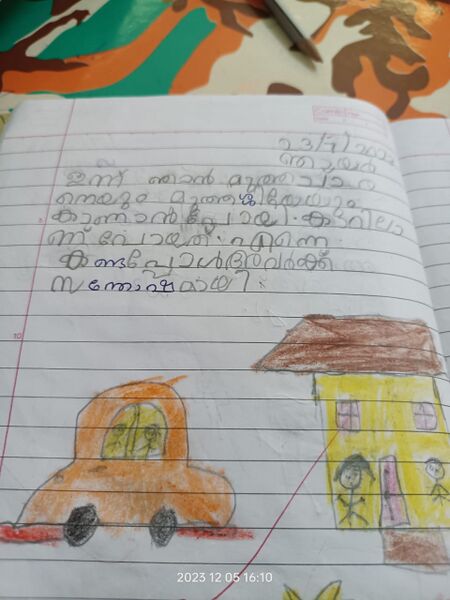 23/7/202
ഞായർ
ഇന്ന് ഞാൻ മുത്തച്ഛ
നെയും മുത്തശ്ശിയേയും
കാണാൻ പോയി. കാറിലാ
ണ് പോയത്. എന്നെ
കണ്ടപ്പോൾ അവർക്ക്
സന്തോഷമായി.
2023 12 05 16:10